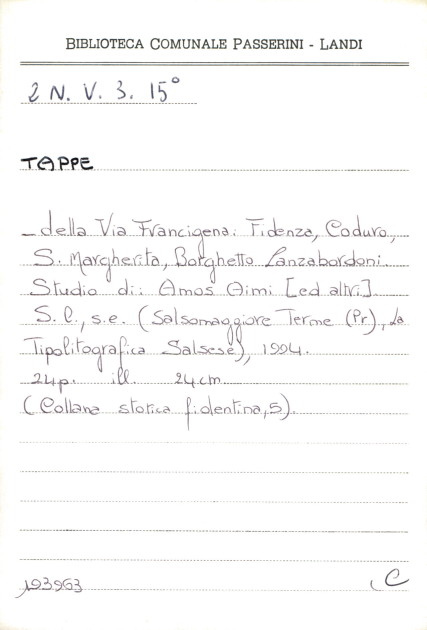 BIBLIOTECA COMUNALE PASSERINI - LANDI
2 N. V. 3. 15°
TAPPE
_ della Via Francigena: Fidenza, Coduro,
S. Margherita, Borghetto Lanzabordoni.
Studio di: Amos Aimi [ed altri].
S. l., s.e. (Salsomaggiore Terme (Pr), La
Tipolitografica Salsese), 1994.
24p. ill. 24cm
(Collana storica fidentina, 5).
193963
C